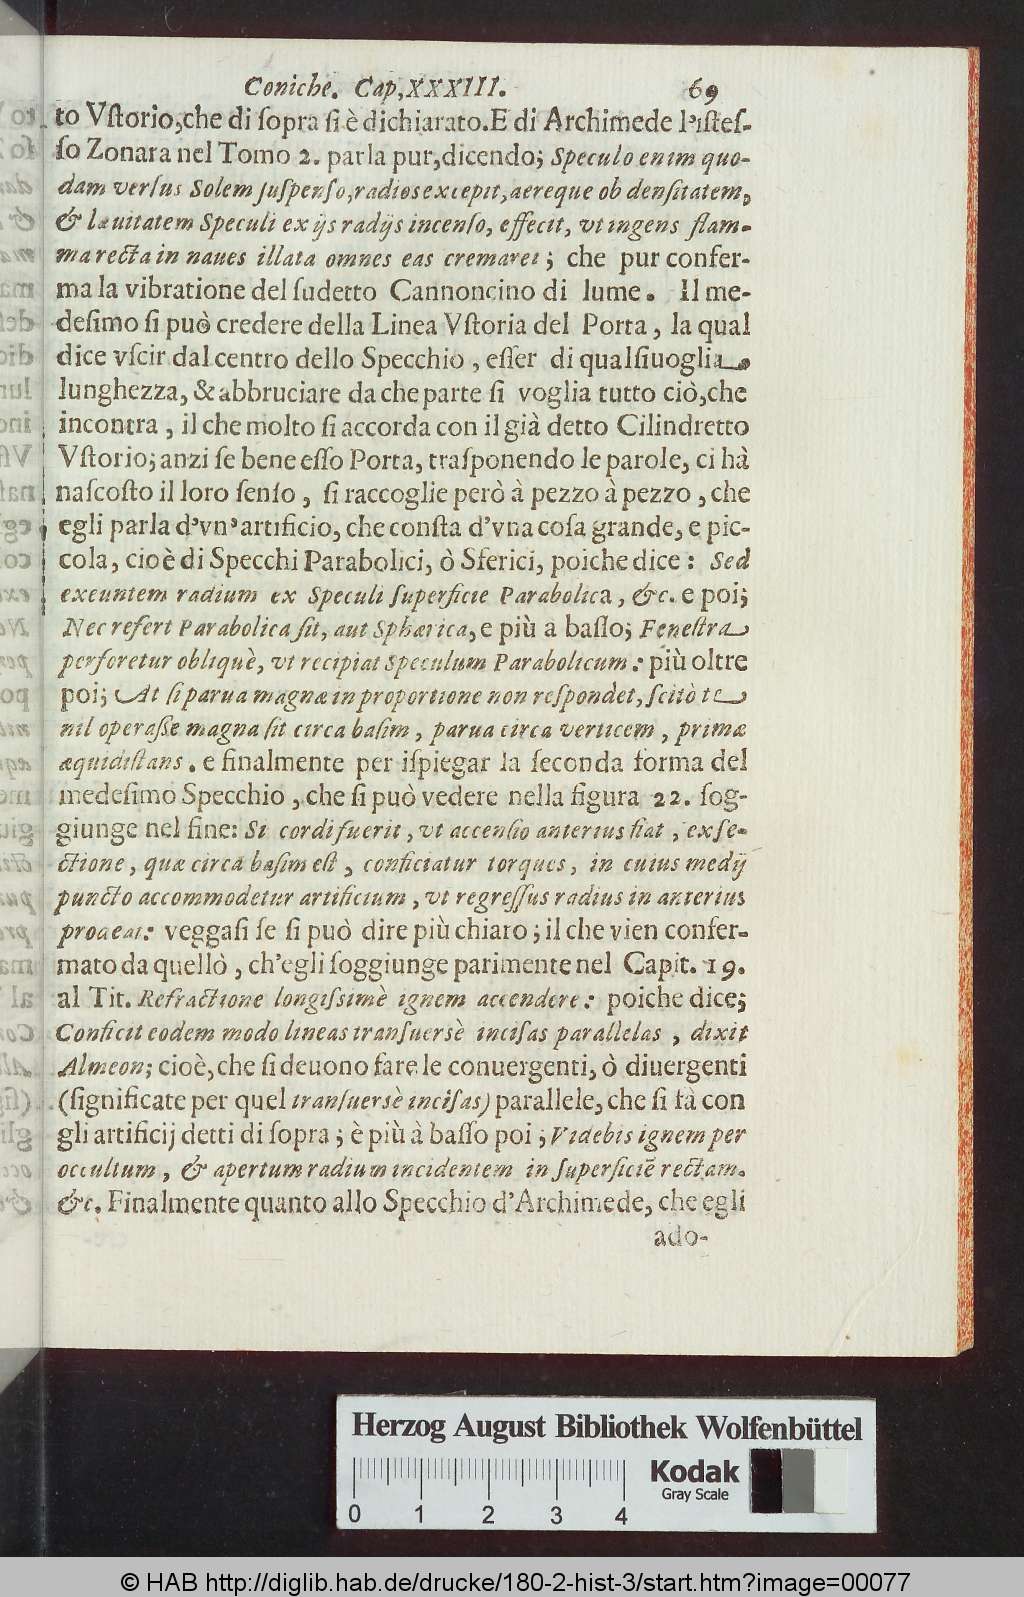 Coniche. Cap,XXXIII. 69
to Vſtorio,che di ſopra ſi è dichiarato.E di Archimede l'iſteſ-
ſo Zonara nel Tomo 2. parla pur,dicendo; Speculo enim quo-
dam verſus Solem ſuſpenſo,radios excepit,aereque ob denſitatem,
& læuitatem Speculi ex ijs radijs incenſo, effecit, vt ingens flam-
ma recta in naues illata omnes eas cremaret; che pur confer-
ma la vibratione del ſudetto Cannoncino di lume. Il me-
deſimo ſi può credere della Linea Vſtoria del Porta, la qual
dice vſcir dal centro dello Specchio, eſſer di qualſiuoglia
lunghezza, & abbruciare da che parte ſi voglia tutto ciò,che
incontra, il che molto ſi accorda con il già detto Cilindretto
Vſtorio; anzi ſe bene eſſo Porta, traſponendo le parole, ci hà
naſcoſto il loro ſenſo, ſi raccoglie però à pezzo à pezzo, che
egli parla d'vn'artificio, che conſta d'vna coſa grande, e pic-
cola, cioè di Specchi Parabolici, ò Sferici, poiche dice: Sed
exeuntem radium ex Speculi ſuperficie Parabolica, &c. e poi;
Nec refert Parabolica ſit, aut Sphærica, e più a baſſo; Feneſtra
perforetur obliquè, vt recipiat Speculum Parabolicum: più oltre
poi; At ſi parua magnæ in proportione non reſpondet, ſcitò te
nil operaſſe magna ſit circa baſim, parua circa verticem, primæ
æquidiſtans. e finalmente per iſpiegar la ſeconda forma del
medeſimo Specchio, che ſi può vedere nella figura 22. ſog-
giunge nel fine: Si cordi fuerit, vt accenſio anterius fiat, ex ſe-
ctione, quæ circa baſim eſt, conficiatur torques, in cuius medij
puncto accommodetur artificium, vt regreſſus radius in anterius
prodeat: veggaſi ſe ſi può dire più chiaro; il che vien confer-
mato da quellò, ch'egli ſoggiunge parimente nel Capit. 19.
al Tit. Refractione longiſsimè ignem accendere: poiche dice;
Conficit eodem modo lineas tranſuersè inciſas parallelas, dixit
Almeon; cioè, che ſi deuono fare le conuergenti, ò diuergenti
(ſignificate per quel tranſuersè inciſas) parallele, che ſi fà con
gli artificij detti di ſopra; è più à baſſo poi; Videbis ignem per
occultum, & apertum radium incidentem in ſuperficiē rectam.
&c. Finalmente quanto allo Specchio d'Archimede, che egli
ado-
Herzog August Bibliothek Wolfenbüttel
Kodak
Gray Scale
0 1 2 3 4
© HAB http://diglib.hab.de/drucke/180-2-hist-3/start.htm?image=00077